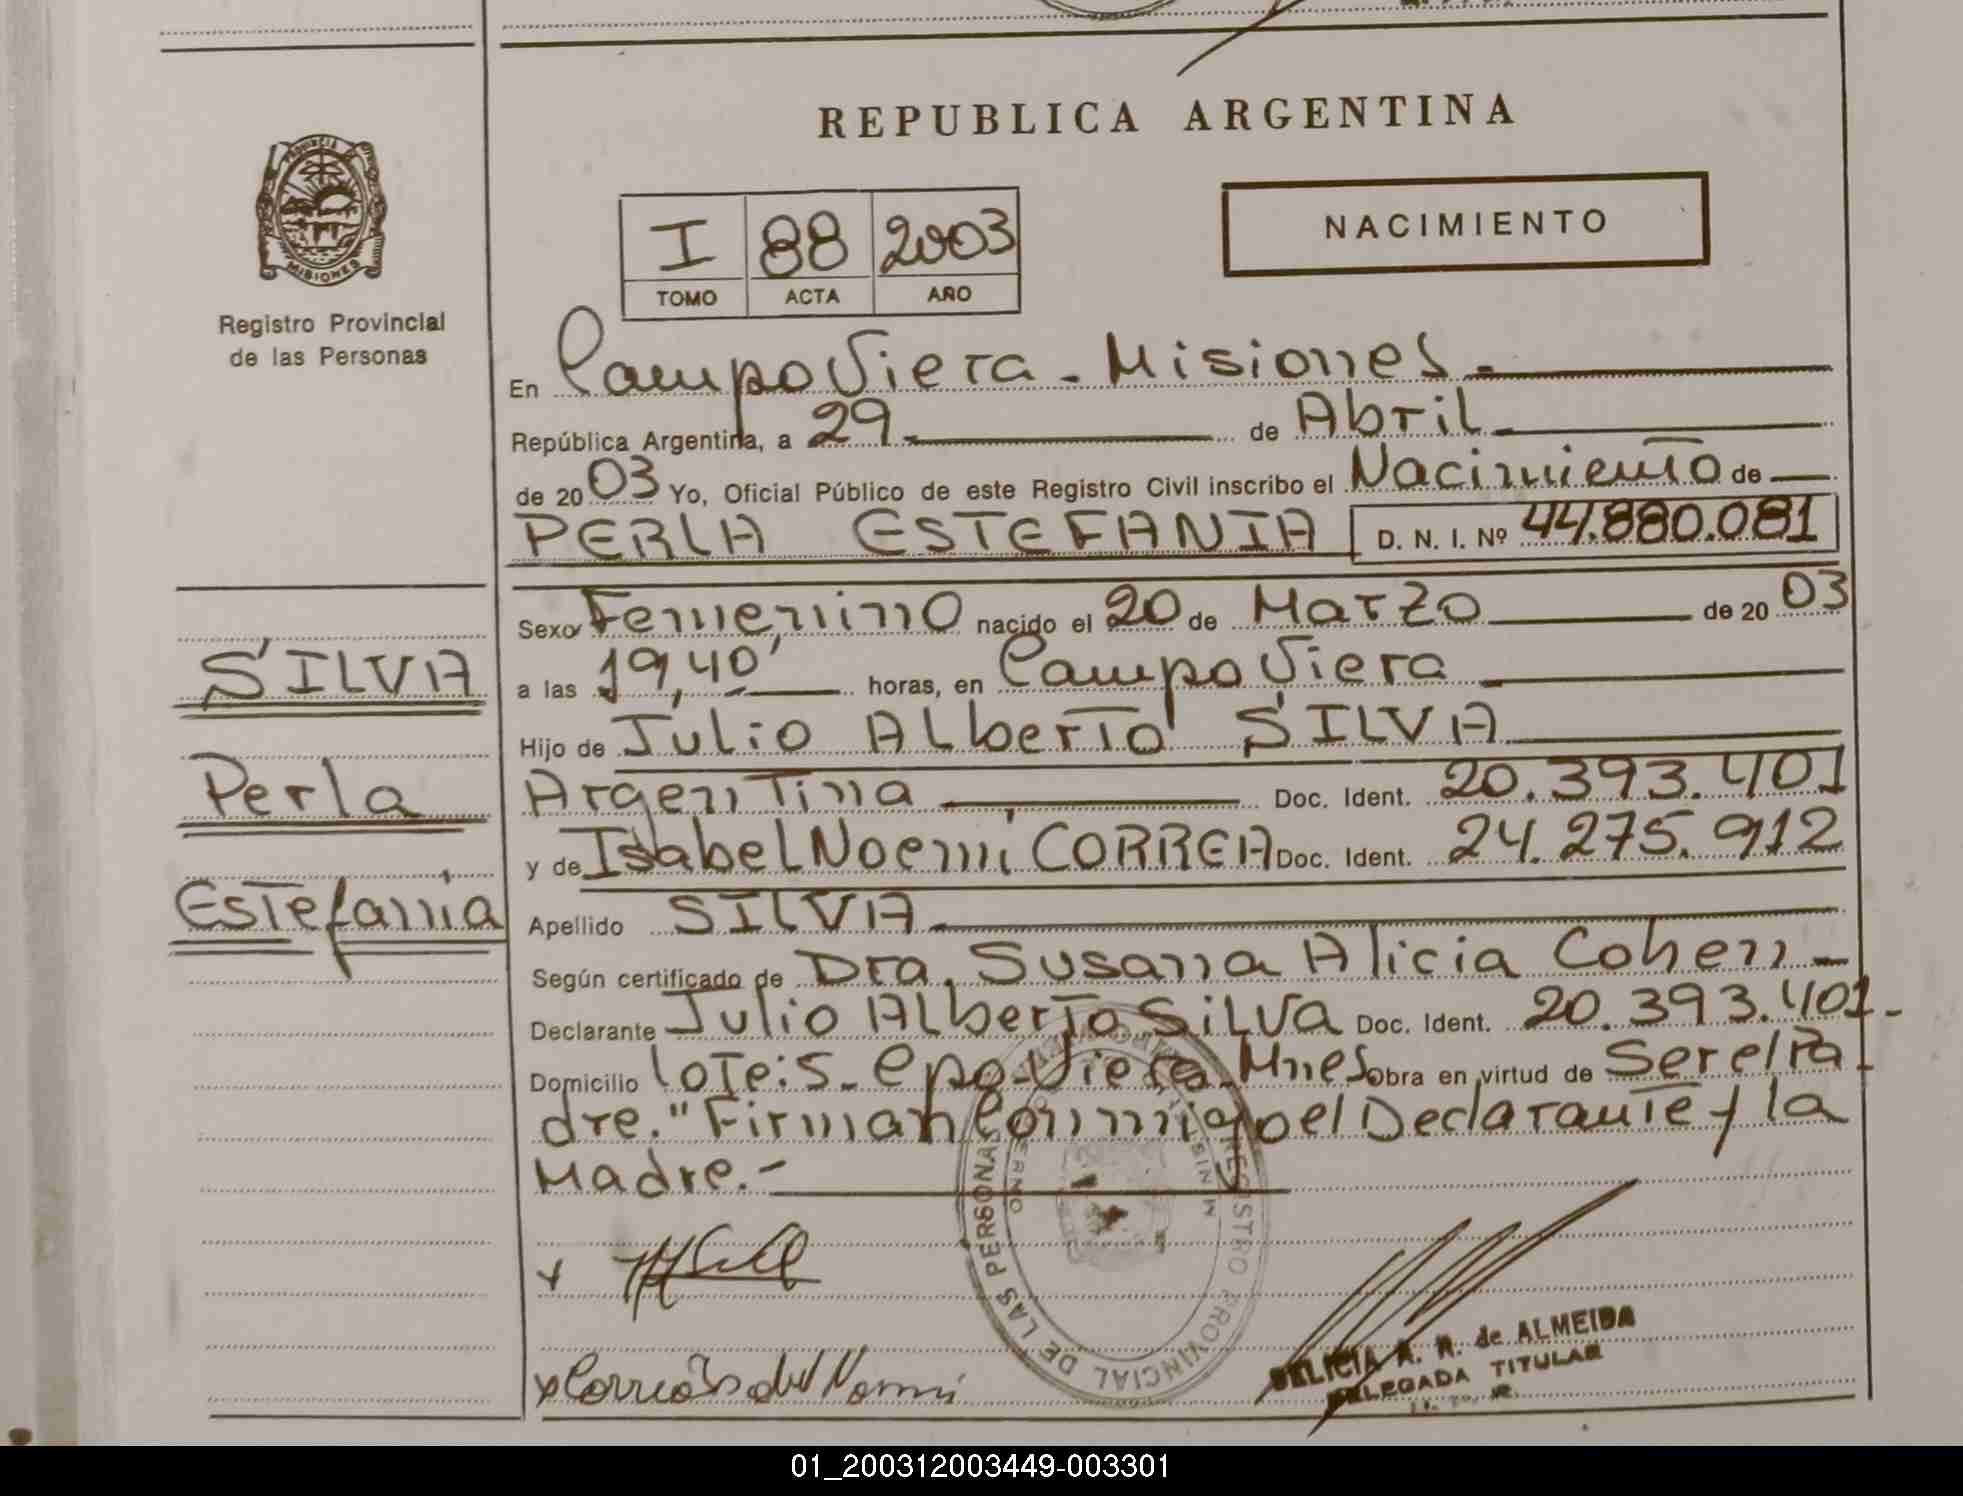 REPUBLICA ARGENTINA
PROVINCIA DE MISIONES
Registro Provincial
de las Personas
I 88 2003
TOMO ACTA AÑO
NACIMIENTO
En Campo Viera - Misiones.-
República Argentina, a 29 de Abril
de 2003 Yo, Oficial Público de este Registro Civil inscribo el Nacimiento de
PERLA ESTEFANIA D. N. I. Nº 44.880.081
SILVA
Perla
Estefania
Sexo Femenino nacido el 20 de Marzo de 2003
a las 19,40' horas, en Campo Viera
Hijo de Julio Alberto SILVA
Argentina Doc. Ident. 20.393.401
y de Isabel Noemi CORREA Doc. Ident. 24.275.912
Apellido SILVA
Según certificado de Dra. Susana Alicia Cohen -
Declarante Julio Alberto SILVA Doc. Ident. 20.393.401.-
Domicilio Lote: 5 - Cpo. Viera - Mnes. Obra en virtud de Ser el Pa-
dre." Firman Conmigo el Declarante y la
Madre.-
REGISTRO PROVINCIAL DE LAS PERSONAS
x
x Correa Isabel Noemi
DELICIA R. R. de ALMEIDA
DELEGADA TITULAR
01_200312003449-003301